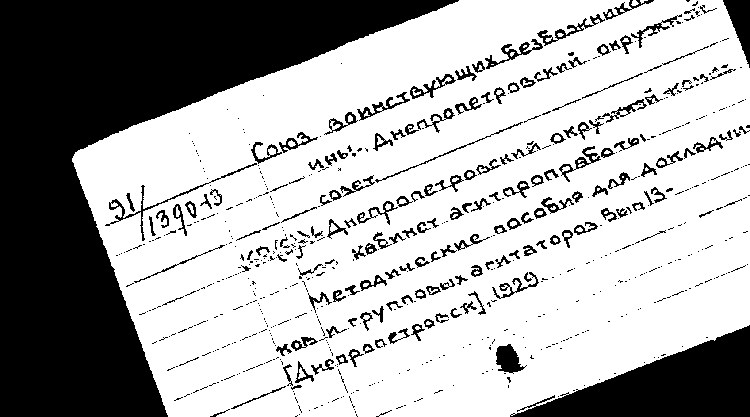 Союз воинствующих безбожников
ины. Днепропетровский окружной
совет.
91/
1390-13
КП(б)У. Днепропетровский окружной коми-
тет кабинет агитпропработы.
Методические пособия для докладчи-
ков и групповых агитаторов. Вып 13-
[Днепропетровск], 1929.